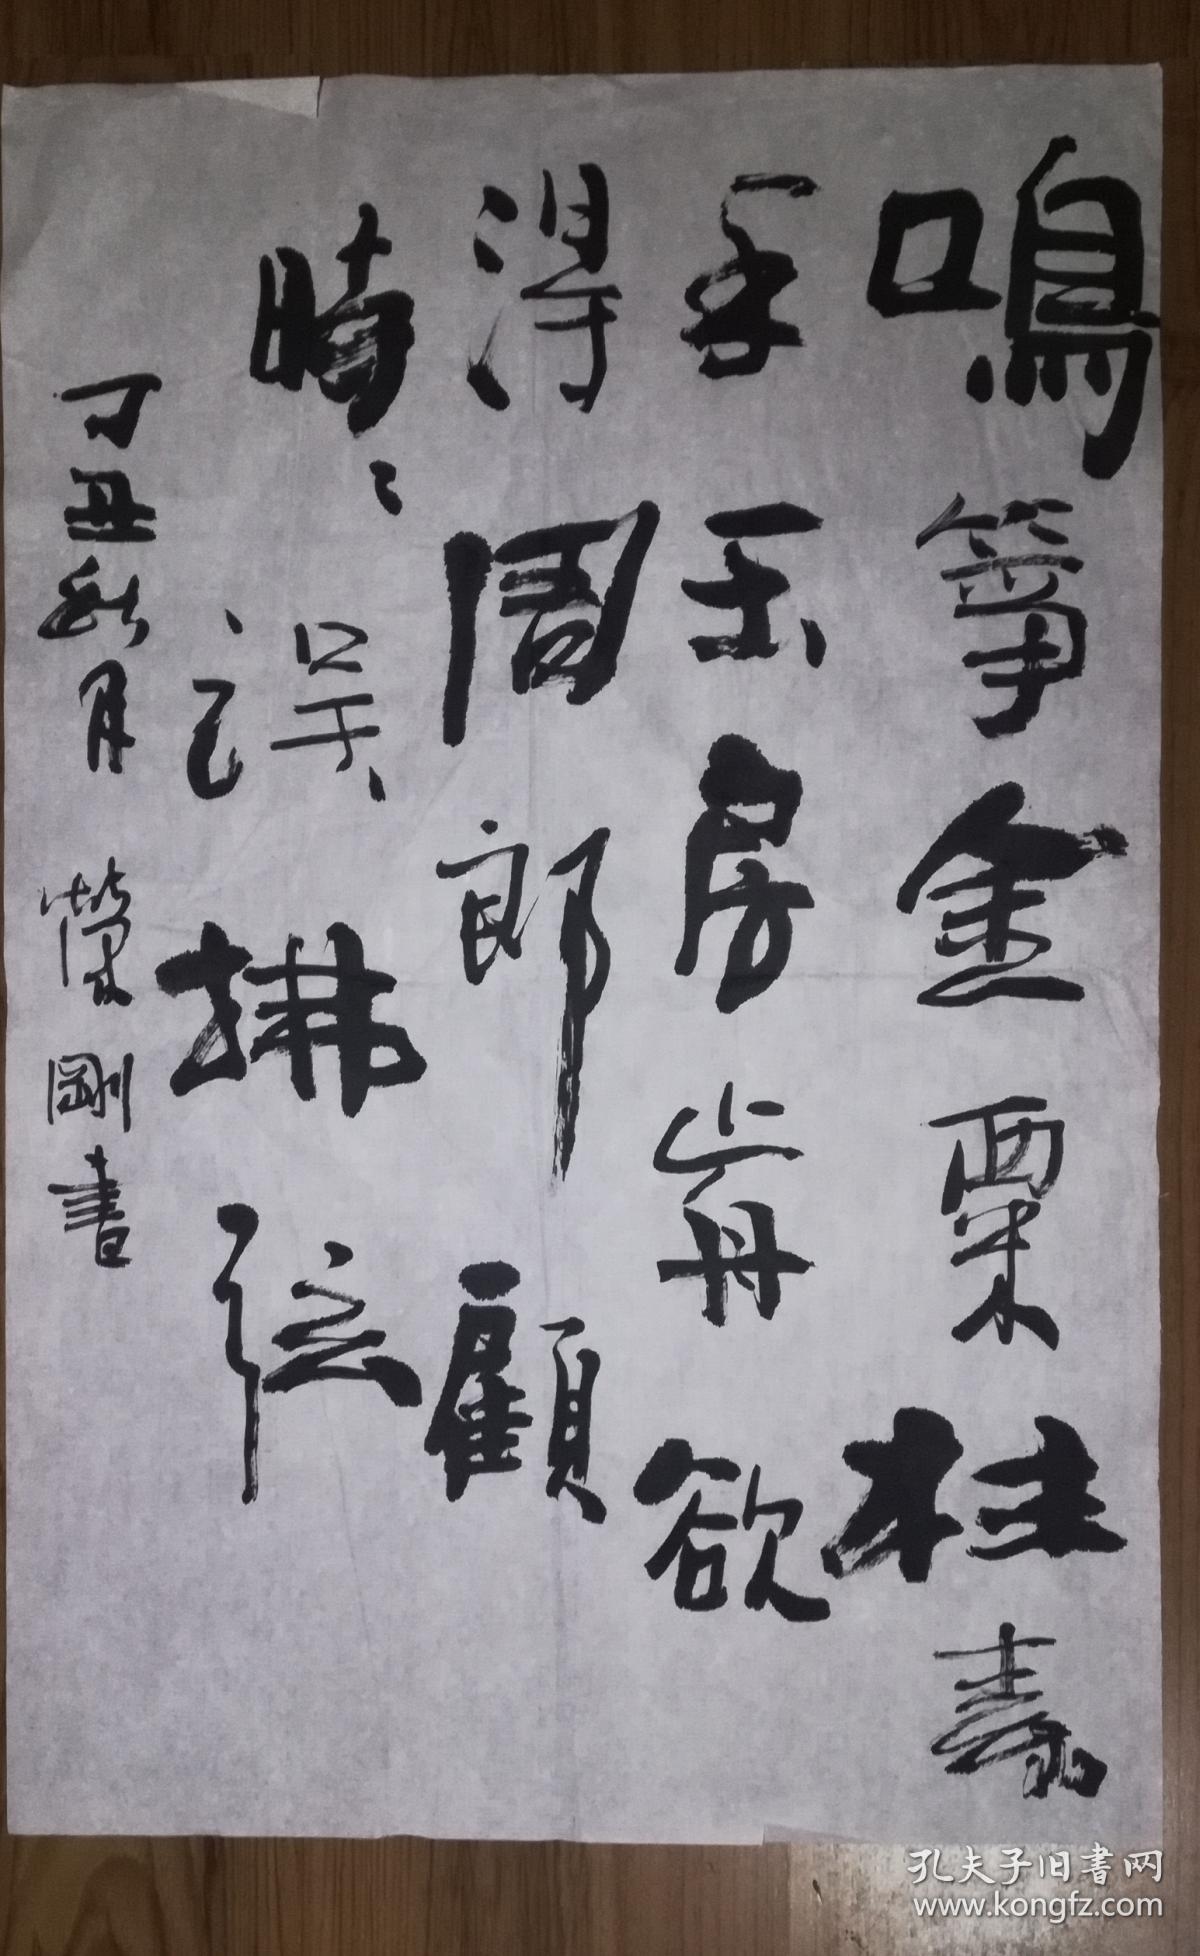 鳴箏金粟柱素
手玉房前欲
得周郎顧
時〻誤拂弦
丁丑秋月 榮剛書
孔夫子旧書网
www.kongfz.com